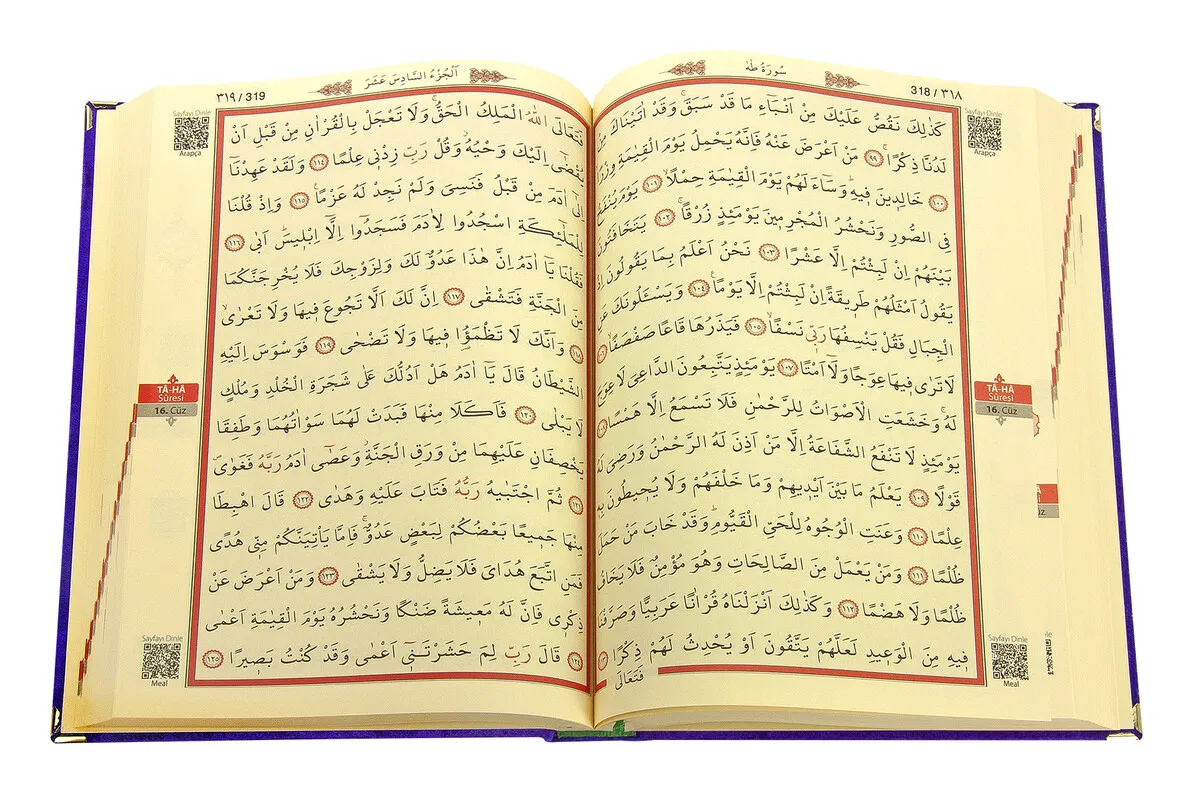 سُورَةُ طٰهٰ
318 / ٣١٨
Sayfayı Dinle
Arapça
كَذٰلِكَ نَقُصُّ عَلَيْكَ مِنْ اَنْبَٓاءِ مَا قَدْ سَبَقَۚ وَقَدْ اٰتَيْنَاكَ مِنْ
لَدُنَّا ذِكْرًاۚ ﴿٩٩﴾ مَنْ اَعْرَضَ عَنْهُ فَاِنَّهُ يَحْمِلُ يَوْمَ الْقِيٰمَةِ وِزْرًاۙ
﴿١٠٠﴾ خَالِدٖينَ فٖيهِۜ وَسَٓاءَ لَهُمْ يَوْمَ الْقِيٰمَةِ حِمْلًاۙ ﴿١٠١﴾ يَوْمَ يُنْفَخُ
فِي الصُّورِ وَنَحْشُرُ الْمُجْرِمٖينَ يَوْمَئِذٍ زُرْقًاۚ ﴿١٠٢﴾ يَتَخَافَتُونَ
بَيْنَهُمْ اِنْ لَبِثْتُمْ اِلَّا عَشْرًا ﴿١٠٣﴾ نَحْنُ اَعْلَمُ بِمَا يَقُولُونَ اِذْ
يَقُولُ اَمْثَلُهُمْ طَرٖيقَةً اِنْ لَبِثْتُمْ اِلَّا يَوْمًاۚ ﴿١٠٤﴾ وَيَسْـَٔلُونَكَ عَنِ
الْجِبَالِ فَقُلْ يَنْسِفُهَا رَبّٖي نَسْفًاۙ ﴿١٠٥﴾ فَيَذَرُهَا قَاعًا صَفْصَفًاۙ
لَا تَرٰى فٖيهَا عِوَجًا وَلَٓا اَمْتًاۜ ﴿١٠٧﴾ يَوْمَئِذٍ يَتَّبِعُونَ الدَّاعِيَ لَا عِوَجَ
لَهُۚ وَخَشَعَتِ الْاَصْوَاتُ لِلرَّحْمٰنِ فَلَا تَسْمَعُ اِلَّا هَمْسًا
يَوْمَئِذٍ لَا تَنْفَعُ الشَّفَاعَةُ اِلَّا مَنْ اَذِنَ لَهُ الرَّحْمٰنُ وَرَضِيَ لَهُ
قَوْلًا ﴿١٠٩﴾ يَعْلَمُ مَا بَيْنَ اَيْدٖيهِمْ وَمَا خَلْفَهُمْ وَلَا يُحٖيطُونَ بِهٖ
عِلْمًا ﴿١١٠﴾ وَعَنَتِ الْوُجُوهُ لِلْحَيِّ الْقَيُّومِۜ وَقَدْ خَابَ مَنْ حَمَلَ
ظُلْمًا ﴿١١١﴾ وَمَنْ يَعْمَلْ مِنَ الصَّالِحَاتِ وَهُوَ مُؤْمِنٌ فَلَا يَخَافُ
ظُلْمًا وَلَا هَضْمًا ﴿١١٢﴾ وَكَذٰلِكَ اَنْزَلْنَاهُ قُرْاٰنًا عَرَبِيًّا وَصَرَّفْنَا
فٖيهِ مِنَ الْوَعٖيدِ لَعَلَّهُمْ يَتَّقُونَ اَوْ يُحْدِثُ لَهُمْ ذِكْرًا
فَتَعَالَى
TÂ-HÂ
Sûresi
16. Cüz
Sayfayı Dinle
Meal
٣١٩ / 319
اَلْجُزْءُ السَّادِسَ عَشَرَ
Sayfayı Dinle
Arapça
فَتَعَالَى اللّٰهُ الْمَلِكُ الْحَقُّۚ وَلَا تَعْجَلْ بِالْقُرْاٰنِ مِنْ قَبْلِ اَنْ
يُقْضٰٓى اِلَيْكَ وَحْيُهُۘ وَقُلْ رَبِّ زِدْنٖي عِلْمًا ﴿١١٤﴾ وَلَقَدْ عَهِدْنَٓا
اِلٰٓى اٰدَمَ مِنْ قَبْلُ فَنَسِيَ وَلَمْ نَجِدْ لَهُ عَزْمًاۚ ﴿١١٥﴾ وَاِذْ قُلْنَا
لِلْمَلٰٓئِكَةِ اسْجُدُوا لِاٰدَمَ فَسَجَدُٓوا اِلَّٓا اِبْلٖيسَۜ اَبٰى ﴿١١٦﴾
فَقُلْنَا يَٓا اٰدَمُ اِنَّ هٰذَا عَدُوٌّ لَكَ وَلِزَوْجِكَ فَلَا يُخْرِجَنَّكُمَا
مِنَ الْجَنَّةِ فَتَشْقٰى ﴿١١٧﴾ اِنَّ لَكَ اَلَّا تَجُوعَ فٖيهَا وَلَا تَعْرٰىۙ
﴿١١٨﴾ وَاَنَّكَ لَا تَظْمَؤُ۬ا فٖيهَا وَلَا تَضْحٰى ﴿١١٩﴾ فَوَسْوَسَ اِلَيْهِ
الشَّيْطَانُ قَالَ يَٓا اٰدَمُ هَلْ اَدُلُّكَ عَلٰى شَجَرَةِ الْخُلْدِ وَمُلْكٍ
لَا يَبْلٰى ﴿١٢٠﴾ فَاَكَلَا مِنْهَا فَبَدَتْ لَهُمَا سَوْاٰتُهُمَا وَطَفِقَا
يَخْصِفَانِ عَلَيْهِمَا مِنْ وَرَقِ الْجَنَّةِۘ وَعَصٰٓى اٰدَمُ رَبَّهُ فَغَوٰىۖ
﴿١٢١﴾ ثُمَّ اجْتَبٰيهُ رَبُّهُ فَتَابَ عَلَيْهِ وَهَدٰى ﴿١٢٢﴾ قَالَ اهْبِطَا
مِنْهَا جَمٖيعًا بَعْضُكُمْ لِبَعْضٍ عَدُوٌّۚ فَاِمَّا يَأْتِيَنَّكُمْ مِنّٖي هُدًى
فَمَنِ اتَّبَعَ هُدَايَ فَلَا يَضِلُّ وَلَا يَشْقٰى ﴿١٢٣﴾ وَمَنْ اَعْرَضَ عَنْ
ذِكْرٖي فَاِنَّ لَهُ مَعٖيشَةً ضَنْكًا وَنَحْشُرُهُ يَوْمَ الْقِيٰمَةِ اَعْمٰى
﴿١٢٤﴾ قَالَ رَبِّ لِمَ حَشَرْتَنٖٓي اَعْمٰى وَقَدْ كُنْتُ بَصٖيرًا ﴿١٢٥﴾
TÂ-HÂ
Sûresi
16. Cüz
Sayfayı Dinle
Meal